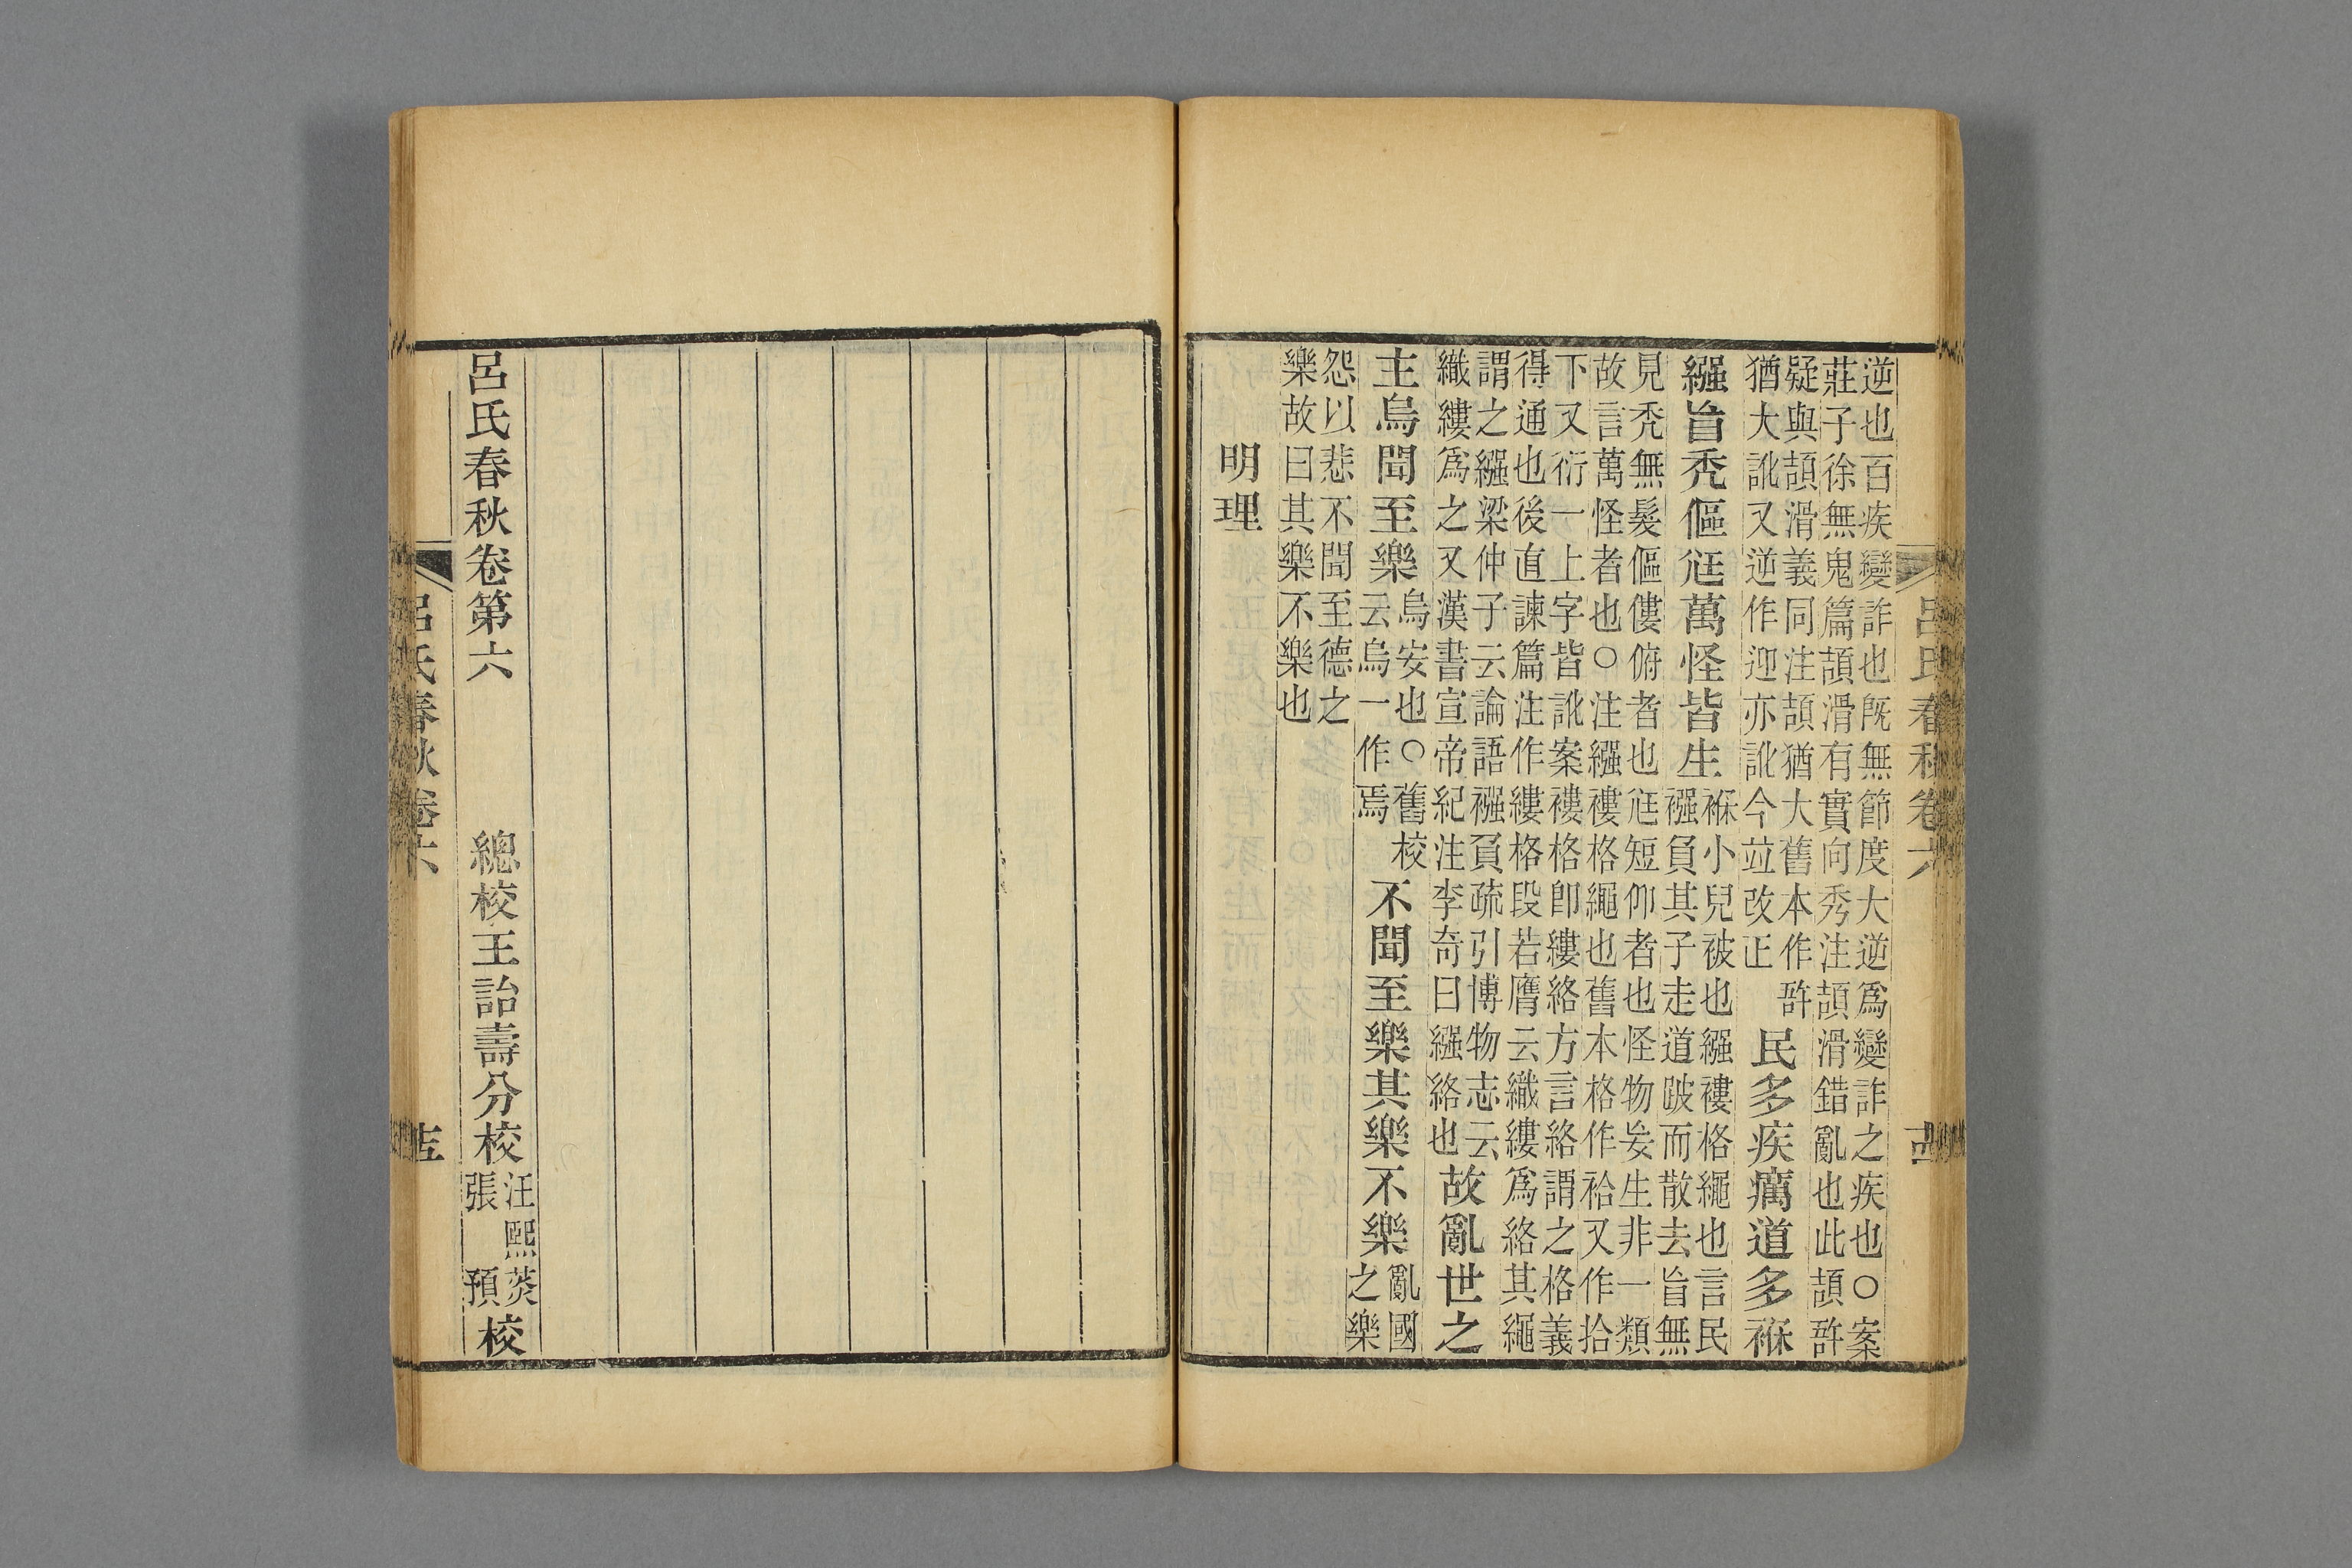 呂氏春秋卷六
逆也百疾變詐也既無節度大逆爲變詐之疾也○案
莊子徐無鬼篇頡滑有實向秀注頡滑錯亂也此頡啎
疑與頡滑義同注頡猶大舊本作啎
猶大訛又逆作迎亦訛今竝改正
民多疾癘道多褓
繈盲禿傴尪萬怪皆生
褓小兒被也繈褸格繩也言民
襁負其子走道跛而散去盲無
見禿無髮傴僂俯者也尪短仰者也怪物妄生非一類
故言萬怪者也○注繈褸格繩也舊本格作袷又作拾
下又衍一上字皆訛案褸格卽縷絡方言絡謂之格義
得通也後直諫篇注作縷格段若膺云織縷爲絡其繩
謂之繈梁仲子云論語襁負疏引博物志云
織縷爲之又漢書宣帝紀注李奇曰繈絡也
故亂世之
主烏聞至樂
烏安也○舊校
云烏一作焉
不聞至樂其樂不樂
亂國
之樂
怨以悲不聞至德之
樂故曰其樂不樂也
明理
呂氏春秋卷第六
總校王詒壽分校
汪熙
張
菼
預
校
呂氏春秋卷六